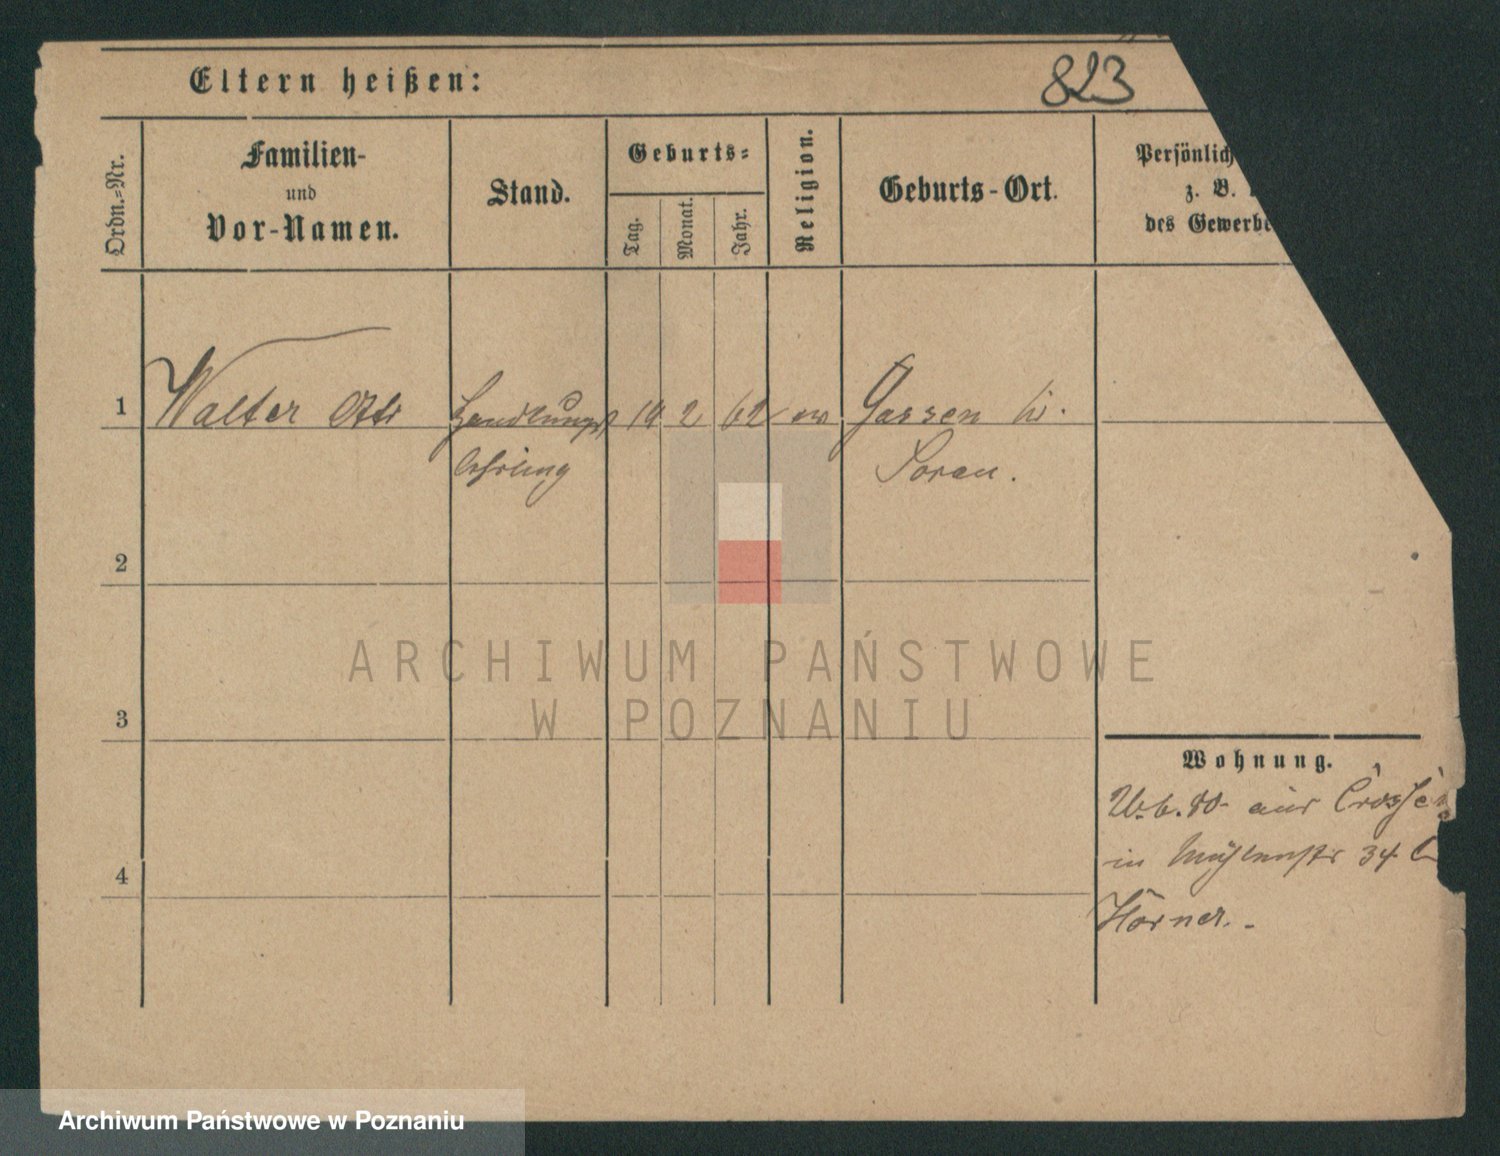 823
Eltern heißen:
Ordn.-Nr.
Familien-
und
Vor-Namen.
Stand.
Geburts-
Tag.
Monat.
Jahr.
Religion.
Geburts-Ort.
Persönlich
z. B.
des Gewerbe
1 Walter Otto Handlungs 19 2 62 ev Gassen
Lehrling Sorau.
2
3
4
Wohnung.
6.80. aus Crossen
in Mühlenstr 34
Hörner.
ARCHIWUM PAŃSTWOWE
W POZNANIU
Archiwum Państwowe w Poznaniu